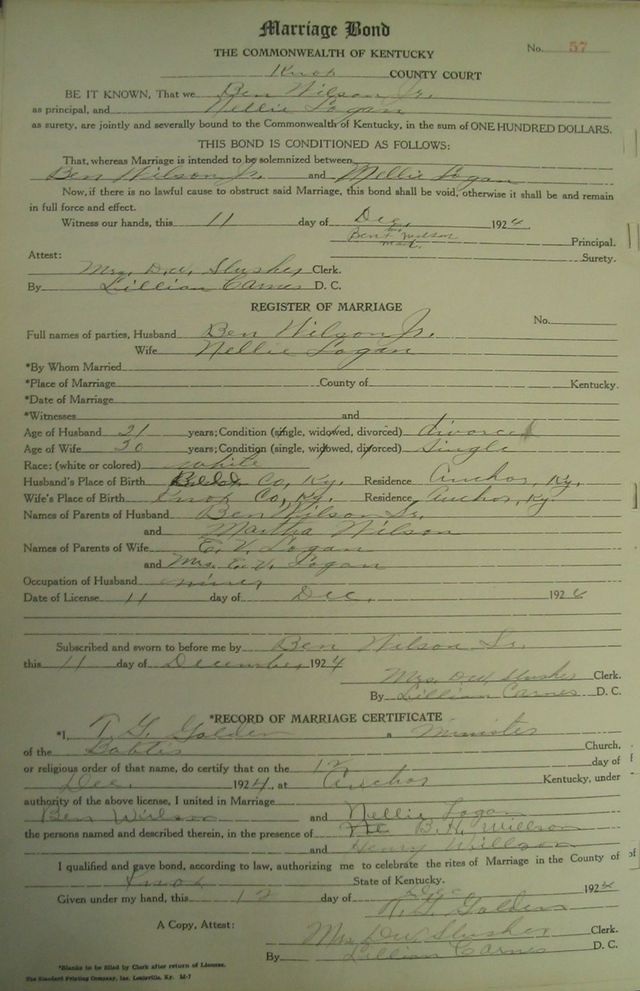 Marriage Bond
THE COMMONWEALTH OF KENTUCKY No. 57
Knox COUNTY COURT
BE IT KNOWN, That we Ben Wilson Jr.
as principal, and Nellie Logan
as surety, are jointly and severally bound to the Commonwealth of Kentucky, in the sum of ONE HUNDRED DOLLARS.
THIS BOND IS CONDITIONED AS FOLLOWS:
That, whereas Marriage is intended to be solemnized between
Ben Wilson Jr. and Nellie Logan
Now, if there is no lawful cause to obstruct said Marriage, this bond shall be void, otherwise it shall be and remain
in full force and effect.
Witness our hands, this 11 day of Dec. 1924
Ben Wilson Principal.
mark
Surety.
Attest:
Mrs. D.W. Slusher Clerk.
By Lillian Carnes D. C.
REGISTER OF MARRIAGE
No.
Full names of parties, Husband Ben Wilson Jr.
Wife Nellie Logan
*By Whom Married
*Place of Marriage County of Kentucky.
*Date of Marriage
*Witnesses and
Age of Husband 21 years; Condition (single, widowed, divorced) divorced
Age of Wife 20 years; Condition (single, widowed, divorced) single
Race: (white or colored) white
Husband's Place of Birth Bell Co, Ky. Residence Anchor, Ky.
Wife's Place of Birth Knox Co, Ky. Residence Anchor, Ky
Names of Parents of Husband Ben Wilson Sr.
and Martha Wilson
Names of Parents of Wife E. V. Logan
and Mrs. E. V. Logan
Occupation of Husband miner
Date of License 11 day of Dec. 1924
Subscribed and sworn to before me by Ben Wilson Sr.
this 11 day of December, 1924
Mrs. D.W. Slusher Clerk.
By Lillian Carnes D. C.
*RECORD OF MARRIAGE CERTIFICATE
*I, T. G. Golden a Minister
of the Babtis Church,
or religious order of that name, do certify that on the 12 day of
Dec. 1924, at Anchor Kentucky, under
authority of the above license, I united in Marriage
Ben Willson and Nellie Logan
the persons named and described therein, in the presence of B. H. Willson
and Henry Willson
I qualified and gave bond, according to law, authorizing me to celebrate the rites of Marriage in the County of
Knox State of Kentucky.
Given under my hand, this 12 day of Dec 1924
Golden
A Copy, Attest: Mrs. D.W. Slusher Clerk.
By Lillian Carnes D. C.
*Blanks to be filled by Clerk after return of License.
The Standard Printing Company, Inc. Louisville, Ky. M-7